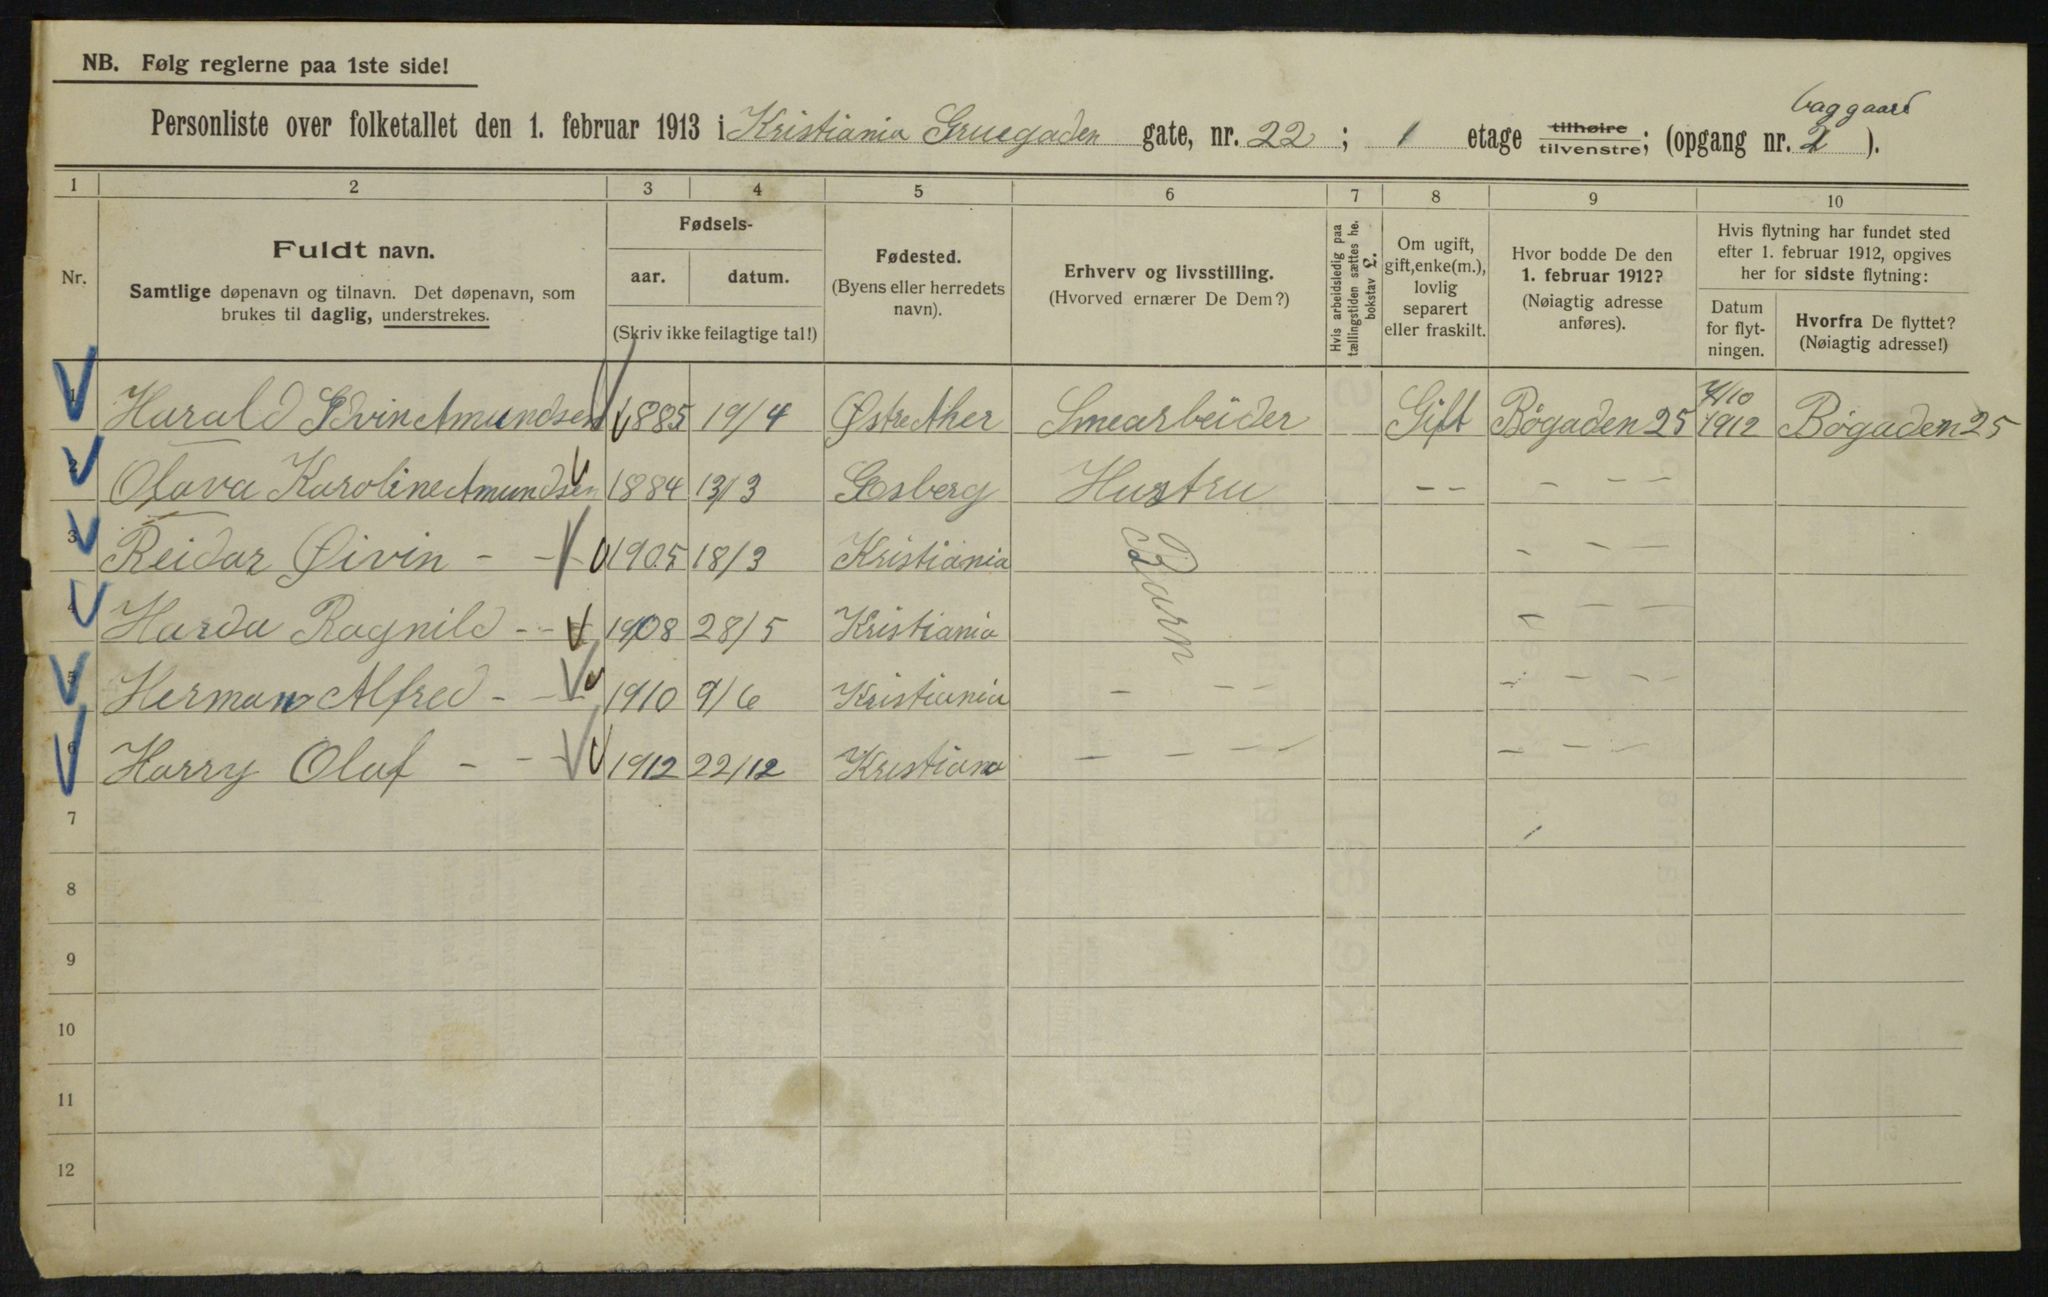 NB. Følg reglerne paa 1ste side!
baggaard
Personliste over folketallet den 1. februar 1913 i Kristiania Gruegaden gate, nr. 22 ; 1 etage tilhøire tilvenstre; (opgang nr. 2 ).
1 2 3 4 5 6 7 8 9 10
Nr.
Fuldt navn.
Samtlige døpenavn og tilnavn. Det døpenavn, som
brukes til daglig, understrekes.
Fødsels-
aar. datum.
(Skriv ikke feilagtige tal!)
Fødested.
(Byens eller herredets
navn).
Erhverv og livsstilling.
(Hvorved ernærer De Dem?)
Hvis arbeidsledig paa
tællingstiden sættes he.
bokstav L.
Om ugift,
gift, enke(m.),
lovlig
separert
eller fraskilt.
Hvor bodde De den
1. februar 1912?
(Nøiagtig adresse
anføres).
Hvis flytning har fundet sted
efter 1. februar 1912, opgives
her for sidste flytning:
Datum
for flyt-
ningen.
Hvorfra De flyttet?
(Nøiagtig adresse!)
1 Harald Edvin Amundsen 1885 19/4 Østre Aker Smearbeider Gift Bøgaden 25 /10 1912 Bøgaden 25
2 Olava Karoline Amundsen 1884 13/3 Hustru - - - - -
3 Reidar Øivin - - 1905 18/3 Kristiania Barn - - -
4 Harda Ragnild - - 1908 28/5 Kristiania - - -
5 Herman Alfred - - 1910 9/6 Kristiania - - - - - - -
6 Harry Olaf - - - 1912 22/12 Kristiana - - - - - - -
7
8
9
10
11
12